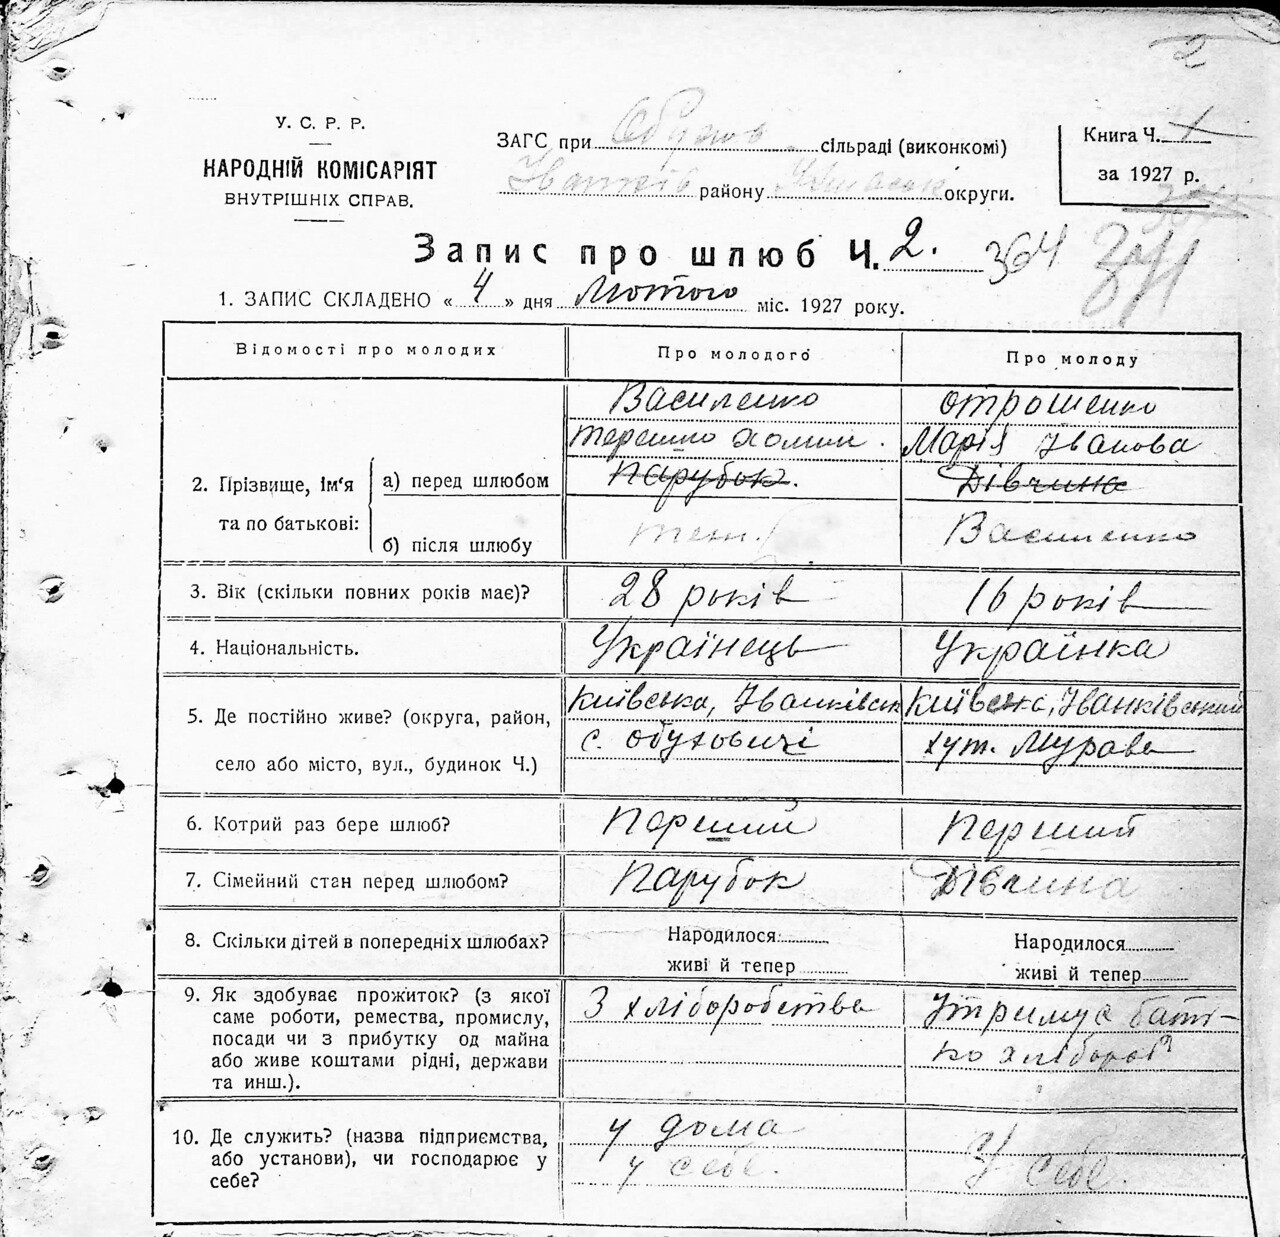 2
У. С. Р. Р.
НАРОДНІЙ КОМІСАРІЯТ
ВНУТРІШНІХ СПРАВ.
ЗАГС при Обухов сільраді (виконкомі)
Іванків району округи.
Книга Ч. 1
за 1927 р.
Запис про шлюб Ч. 2. 364
371
1. ЗАПИС СКЛАДЕНО « 4 » дня Лютого міс. 1927 року.
Відомості про молодих Про молодого Про молоду
2. Прізвище, ім'я та по батькові:
а) перед шлюбом
Василенко
Терешко Хомин.
Парубок.
Отрошенко
Марія Іванова
Дівчина
б) після шлюбу
Василенко
3. Вік (скільки повних років має)? 28 років 16 років
4. Національність. Українець Українка
5. Де постійно живе? (округа, район,
село або місто, вул., будинок Ч.)
Київська, Іванківськ
с. Обуховичі
Київська, Іванківський
хут. Мурава
6. Котрий раз бере шлюб? Перший Перший
7. Сімейний стан перед шлюбом? Парубок Дівчина
8. Скільки дітей в попередніх шлюбах?
Народилося
живі й тепер
Народилося
живі й тепер
9. Як здобуває прожиток? (з якої
саме роботи, ремества, промислу,
посади чи з прибутку од майна
або живе коштами рідні, держави
та инш.).
З хліборобства
Утримує баті-
ко хлібороб
10. Де служить? (назва підприємства,
або установи), чи господарює у
себе?
у дома
у себе.
У себе.